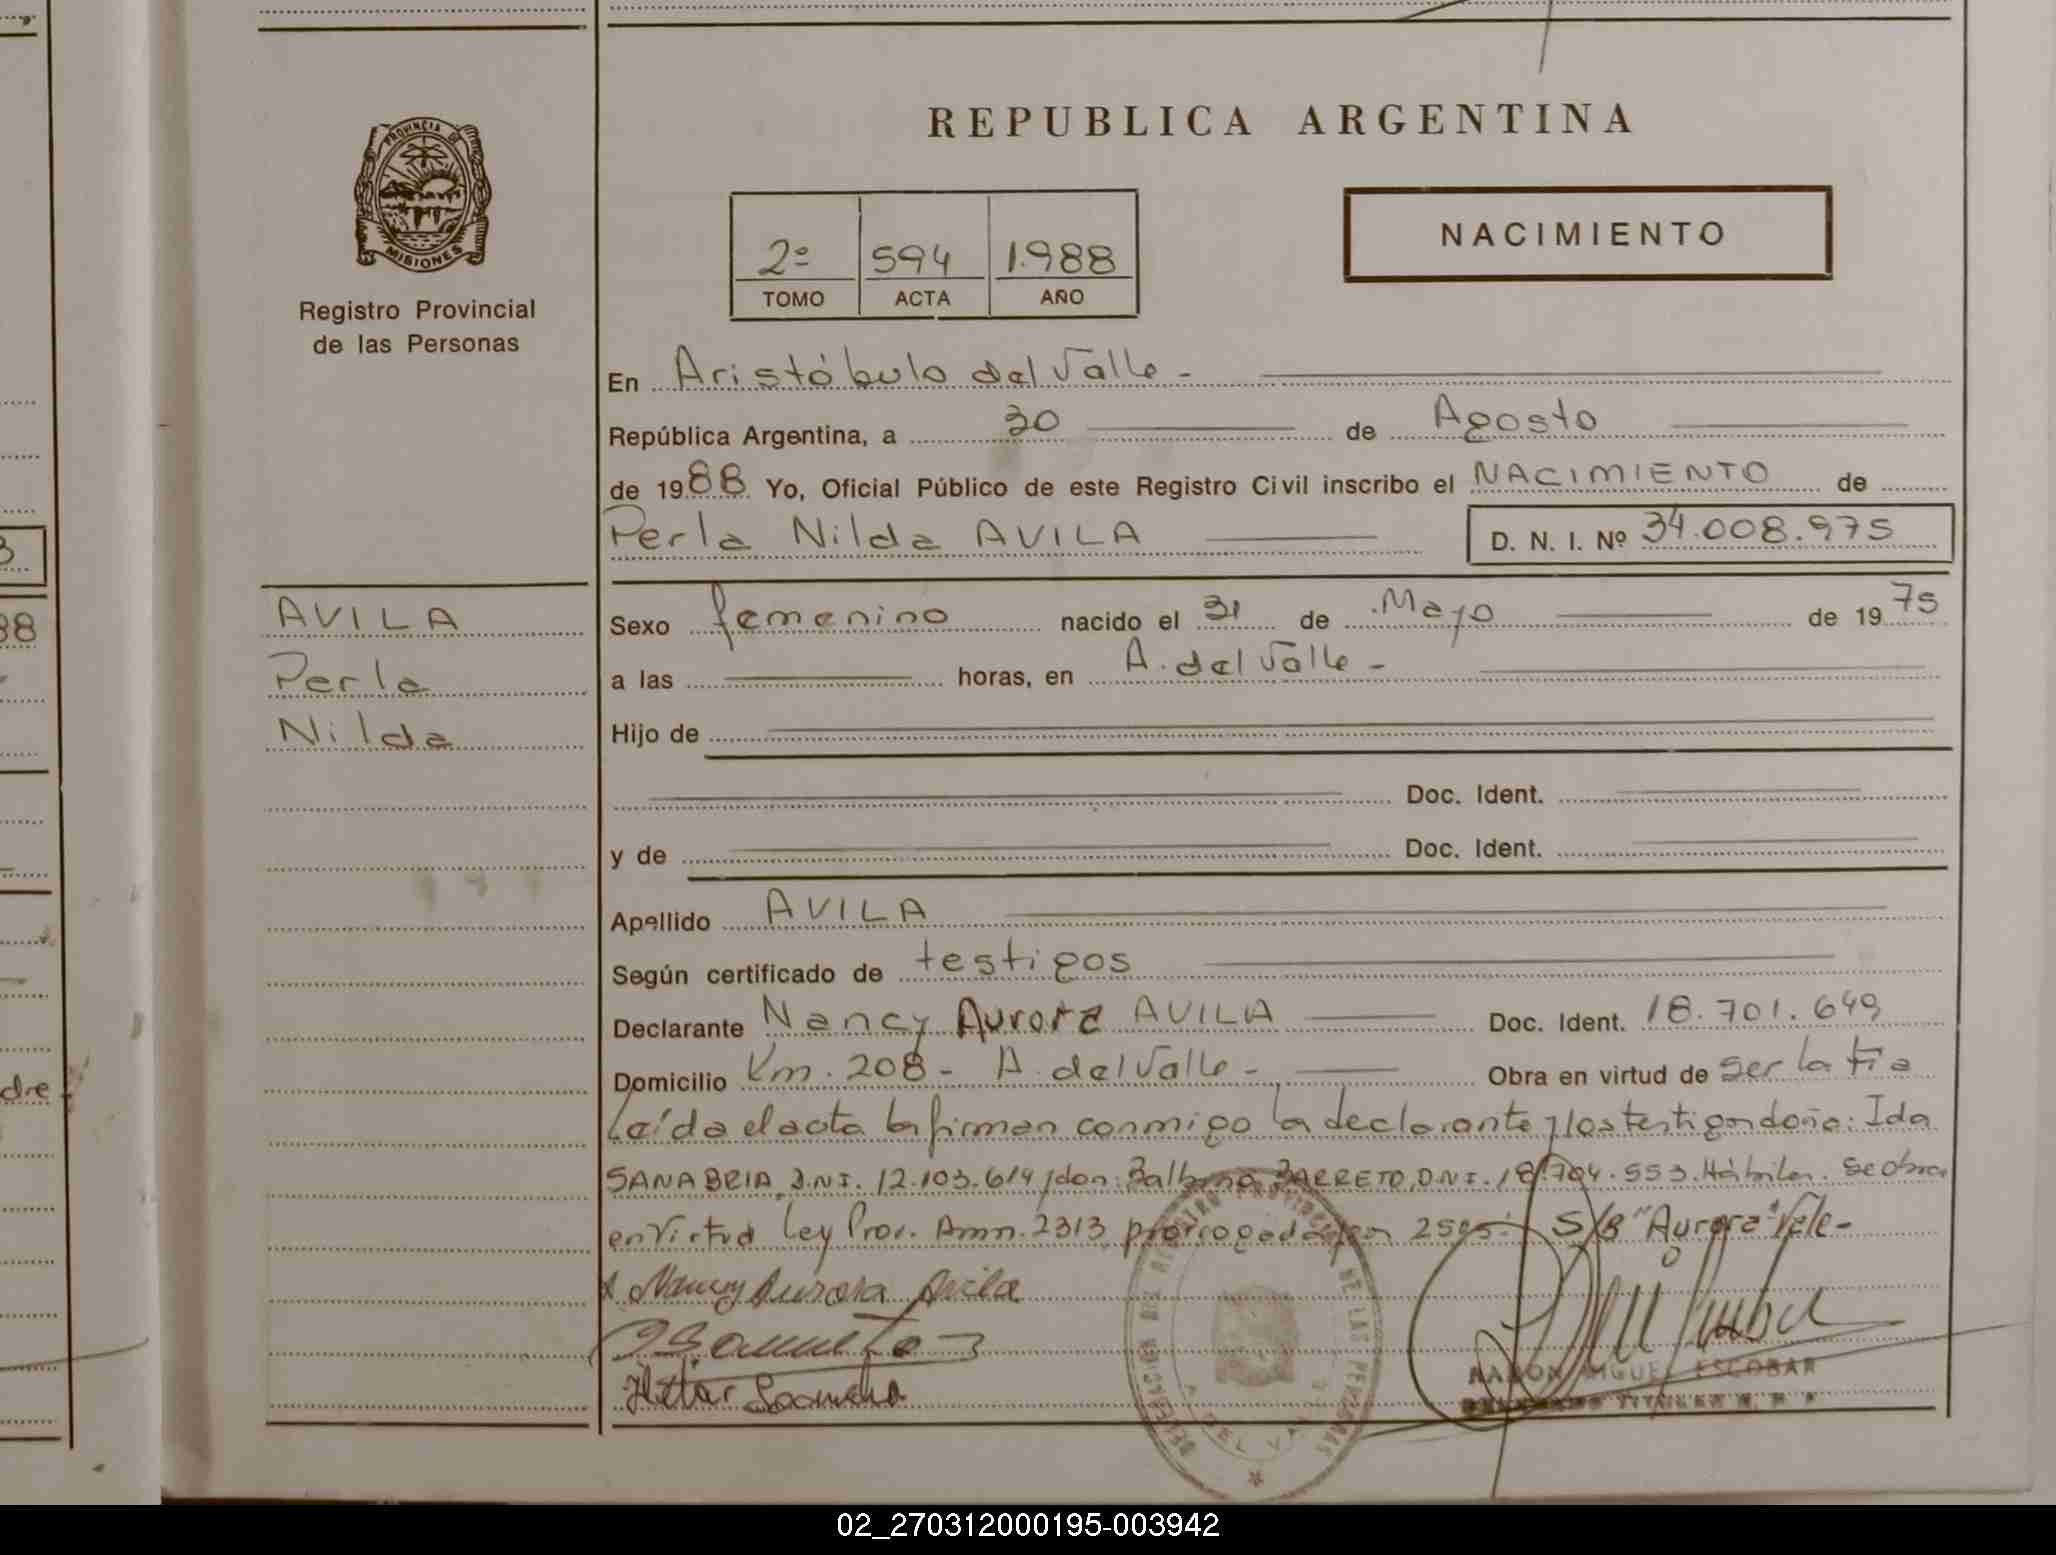 REPUBLICA ARGENTINA
PROVINCIA DE
MISIONES
Registro Provincial
de las Personas
2º 594 1.988
TOMO ACTA AÑO
NACIMIENTO
En Aristóbulo del Valle -
República Argentina, a 30 de Agosto
de 1988 Yo, Oficial Público de este Registro Civil inscribo el NACIMIENTO de
Perla Nilda AVILA D. N. I. Nº 34.008.975
AVILA
Perla
Nilda
Sexo femenino nacido el 31 de Mayo de 1975
a las horas, en A. del Valle -
Hijo de
Doc. Ident.
y de Doc. Ident.
Apellido AVILA
Según certificado de testigos
Declarante Nancy Aurora AVILA Doc. Ident. 18.701.649
Domicilio Km. 208 - A. del Valle - Obra en virtud de ser la tía
Leída el acta la firman conmigo la declarante y los testigos doña: Ida
SANABRIA, D.N.I. 12.103.614 y don: Balbino BARRETO, D.N.I. 18.704.553. Hábiles. Se obra
en Virtud Ley Prov. Amn. 2313 prorrogada por 2595: S/B "Aurora" Vale-
Nancy Aurora Avila
RAMON MIGUEL ESCOBAR
TITULAR
DELEGACION DEL REGISTRO PROVINCIAL DE LAS PERSONAS
A. DEL VALLE
dre
02_270312000195-003942